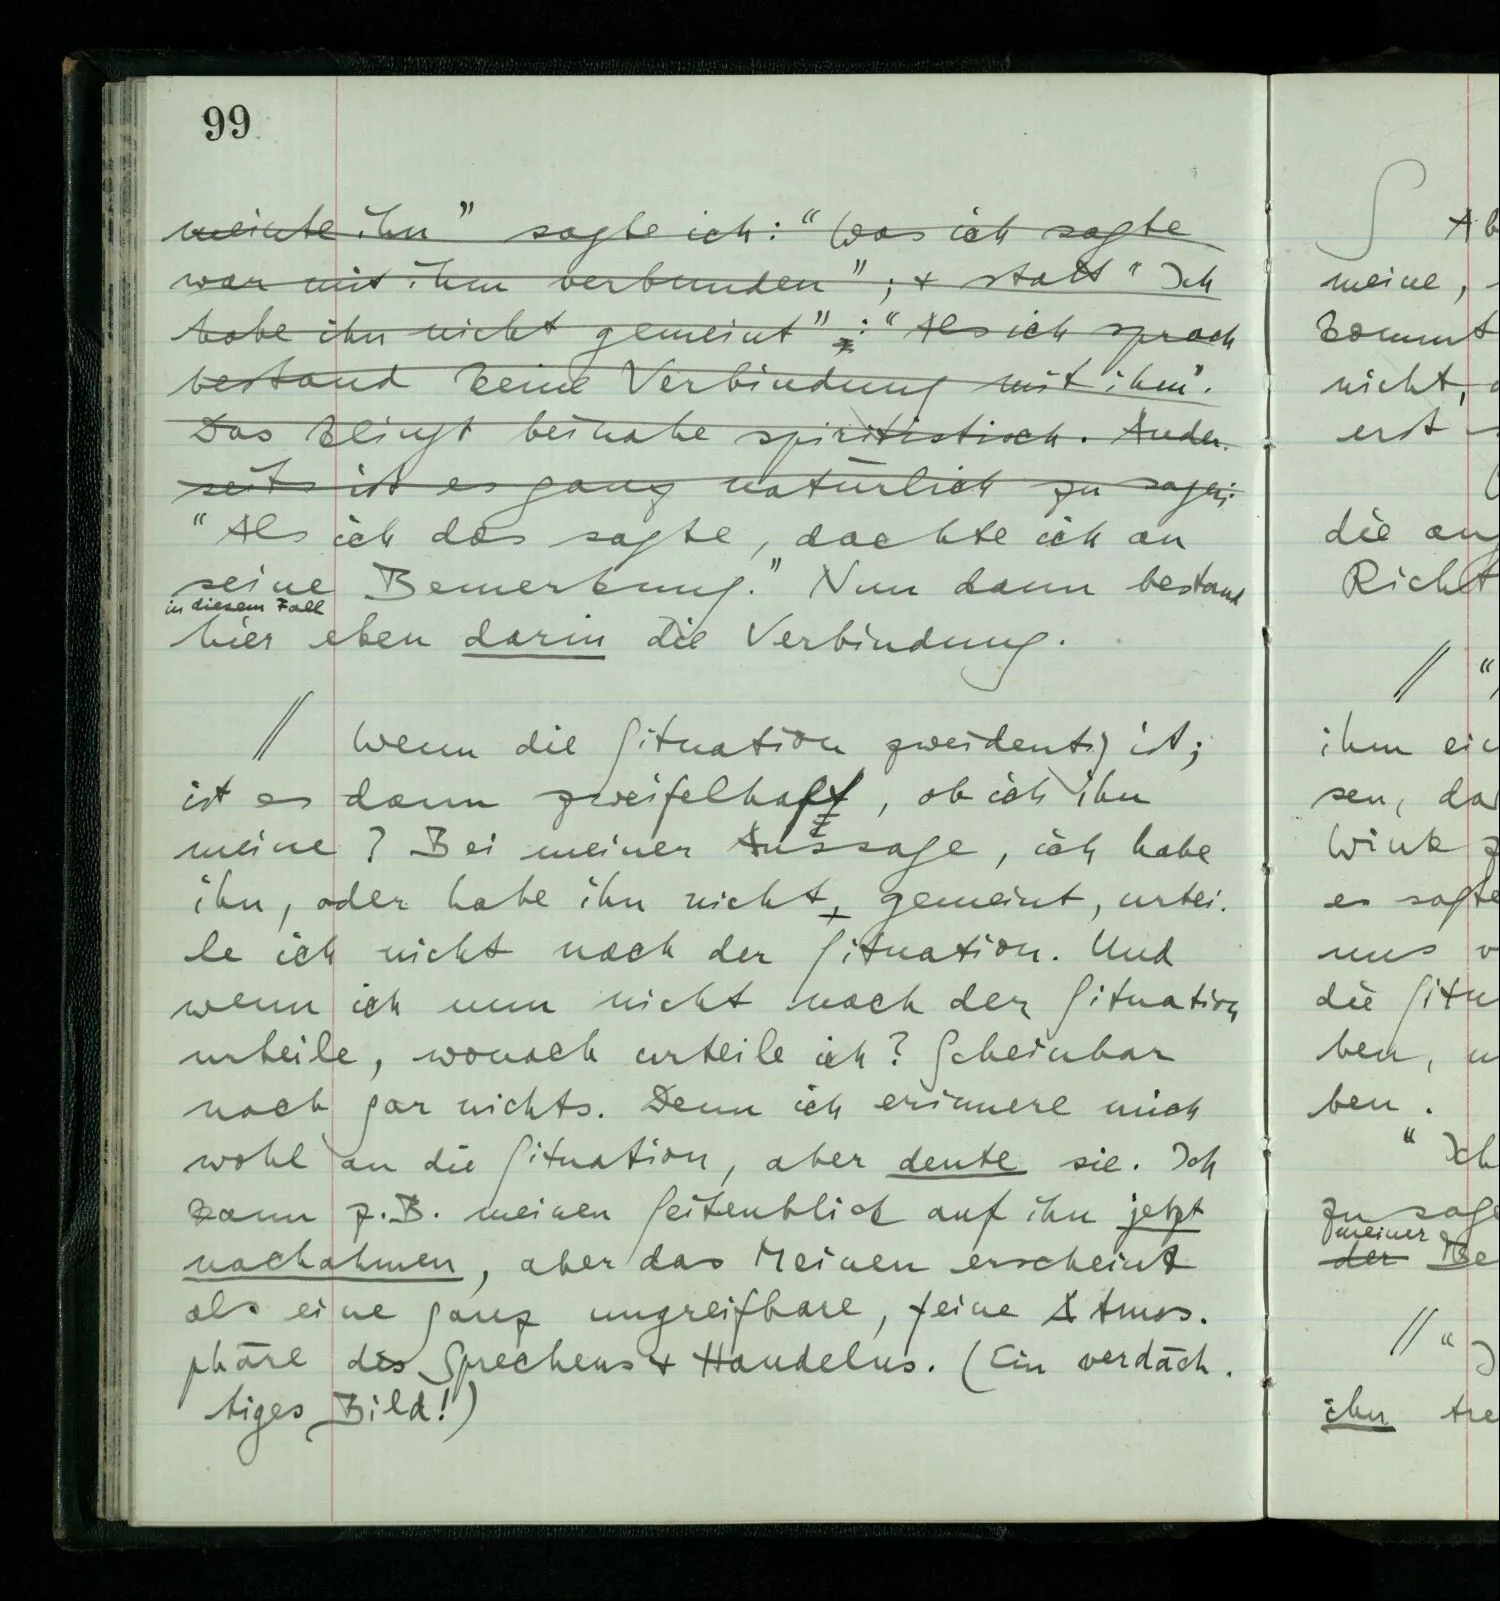 99
meinte ihn" sagte ich: "Was ich sagte
war mit ihm verbunden"; + statt "Ich
habe ihn nicht gemeint": "Als ich sprach
bestand keine Verbindung mit ihm".
Das klingt beinahe spiritistisch. Ander-
seits ist es ganz natürlich zu sagen:
"Als ich das sagte, dachte ich an
seine Bemerkung." Nun dann bestand
in diesem Fall
hier eben darin die Verbindung.
// Wenn die Situation zweideutig ist;
ist es dann zweifelhaft, ob ich ihn
meine? Bei meiner Aussage, ich habe
ihn, oder habe ihn nicht, gemeint, urtei-
le ich nicht nach der Situation. Und
wenn ich nun nicht nach der Situation
urteile, wonach urteile ich? Scheinbar
nach gar nichts. Denn ich erinnere mich
wohl an die Situation, aber deute sie. Ich
kann z.B. meinen Seitenblick auf ihn jetzt
nachahmen, aber das Meinen erscheint
als eine ganz ungreifbare, feine Atmos-
phäre des Sprechens + Handelns. (Ein verdäch-
tiges Bild!)
∫ Ab
meine,
kommt
nicht,
erst
die
Richt
// "
ihm
sen,
Wink
es sagte
uns
die Situ
ben,
ben.
"Ich
zu sage
meiner
der Be
// "
ihn